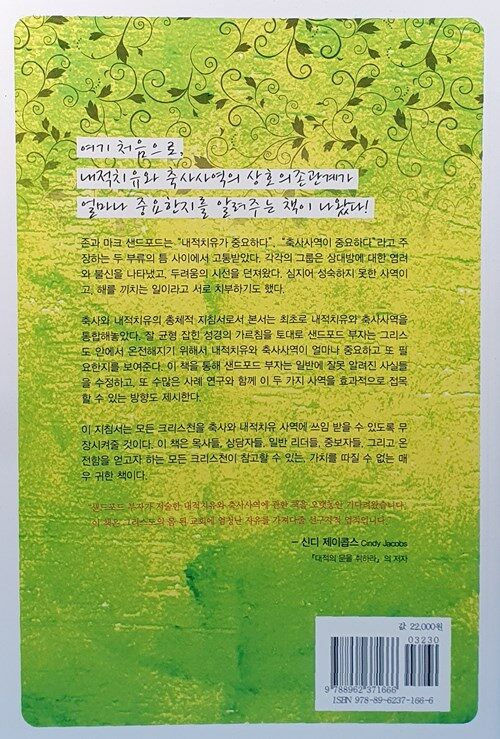 여기 처음으로,
내적치유와 축사사역의 상호의존관계가
얼마나 중요한지를 알려주는 책이 나왔다!
존과 마크 샌드포드는 "내적치유가 중요하다", "축사사역이 중요하다"라고 주
장하는 두 부류의 틈 사이에서 고통받았다. 각각의 그룹은 상대방에 대한 염려
와 불신을 나타냈고, 두려움의 시선을 던져왔다. 심지어 성숙하지 못한 사역이
고, 해를 끼치는 일이라고 서로 치부하기도 했다.
축사와 내적치유의 총체적 지침서로서 본서는 최초로 내적치유와 축사사역을
통합해놓았다. 잘 균형 잡힌 성경의 가르침을 토대로 샌드포드 부자는 그리스
도 안에서 온전해지기 위해서 내적치유와 축사사역이 얼마나 중요하고 또 필
요한지를 보여준다. 이 책을 통해 샌드포드 부자는 일반에 잘못 알려진 사실들
을 수정하고, 또 수많은 사례 연구와 함께 이 두 가지 사역을 효과적으로 접목
할 수 있는 방향도 제시한다.
이 지침서는 모든 크리스천을 축사와 내적치유 사역에 쓰임 받을 수 있도록 무
장시켜줄 것이다. 이 책은 목사들, 상담자들, 일반 리더들, 중보자들, 그리고 온
전함을 얻고자 하는 모든 크리스천이 참고할 수 있는, 가치를 따질 수 없는 매
우 귀한 책이다.
샌드포드 부자가 저술한 내적치유와 축사사역에 관한 책을 오랫동안 기다려왔습니다.
이 책은 그리스도의 몸 된 교회에 엄청난 자유를 가져다줄 선구자적 업적입니다.
– 신디 제이콥스 Cindy Jacobs
「대적의 문을 취하라」의 저자
값 22,000원
03230
9 788962 371666
ISBN 978-89-6237-166-6